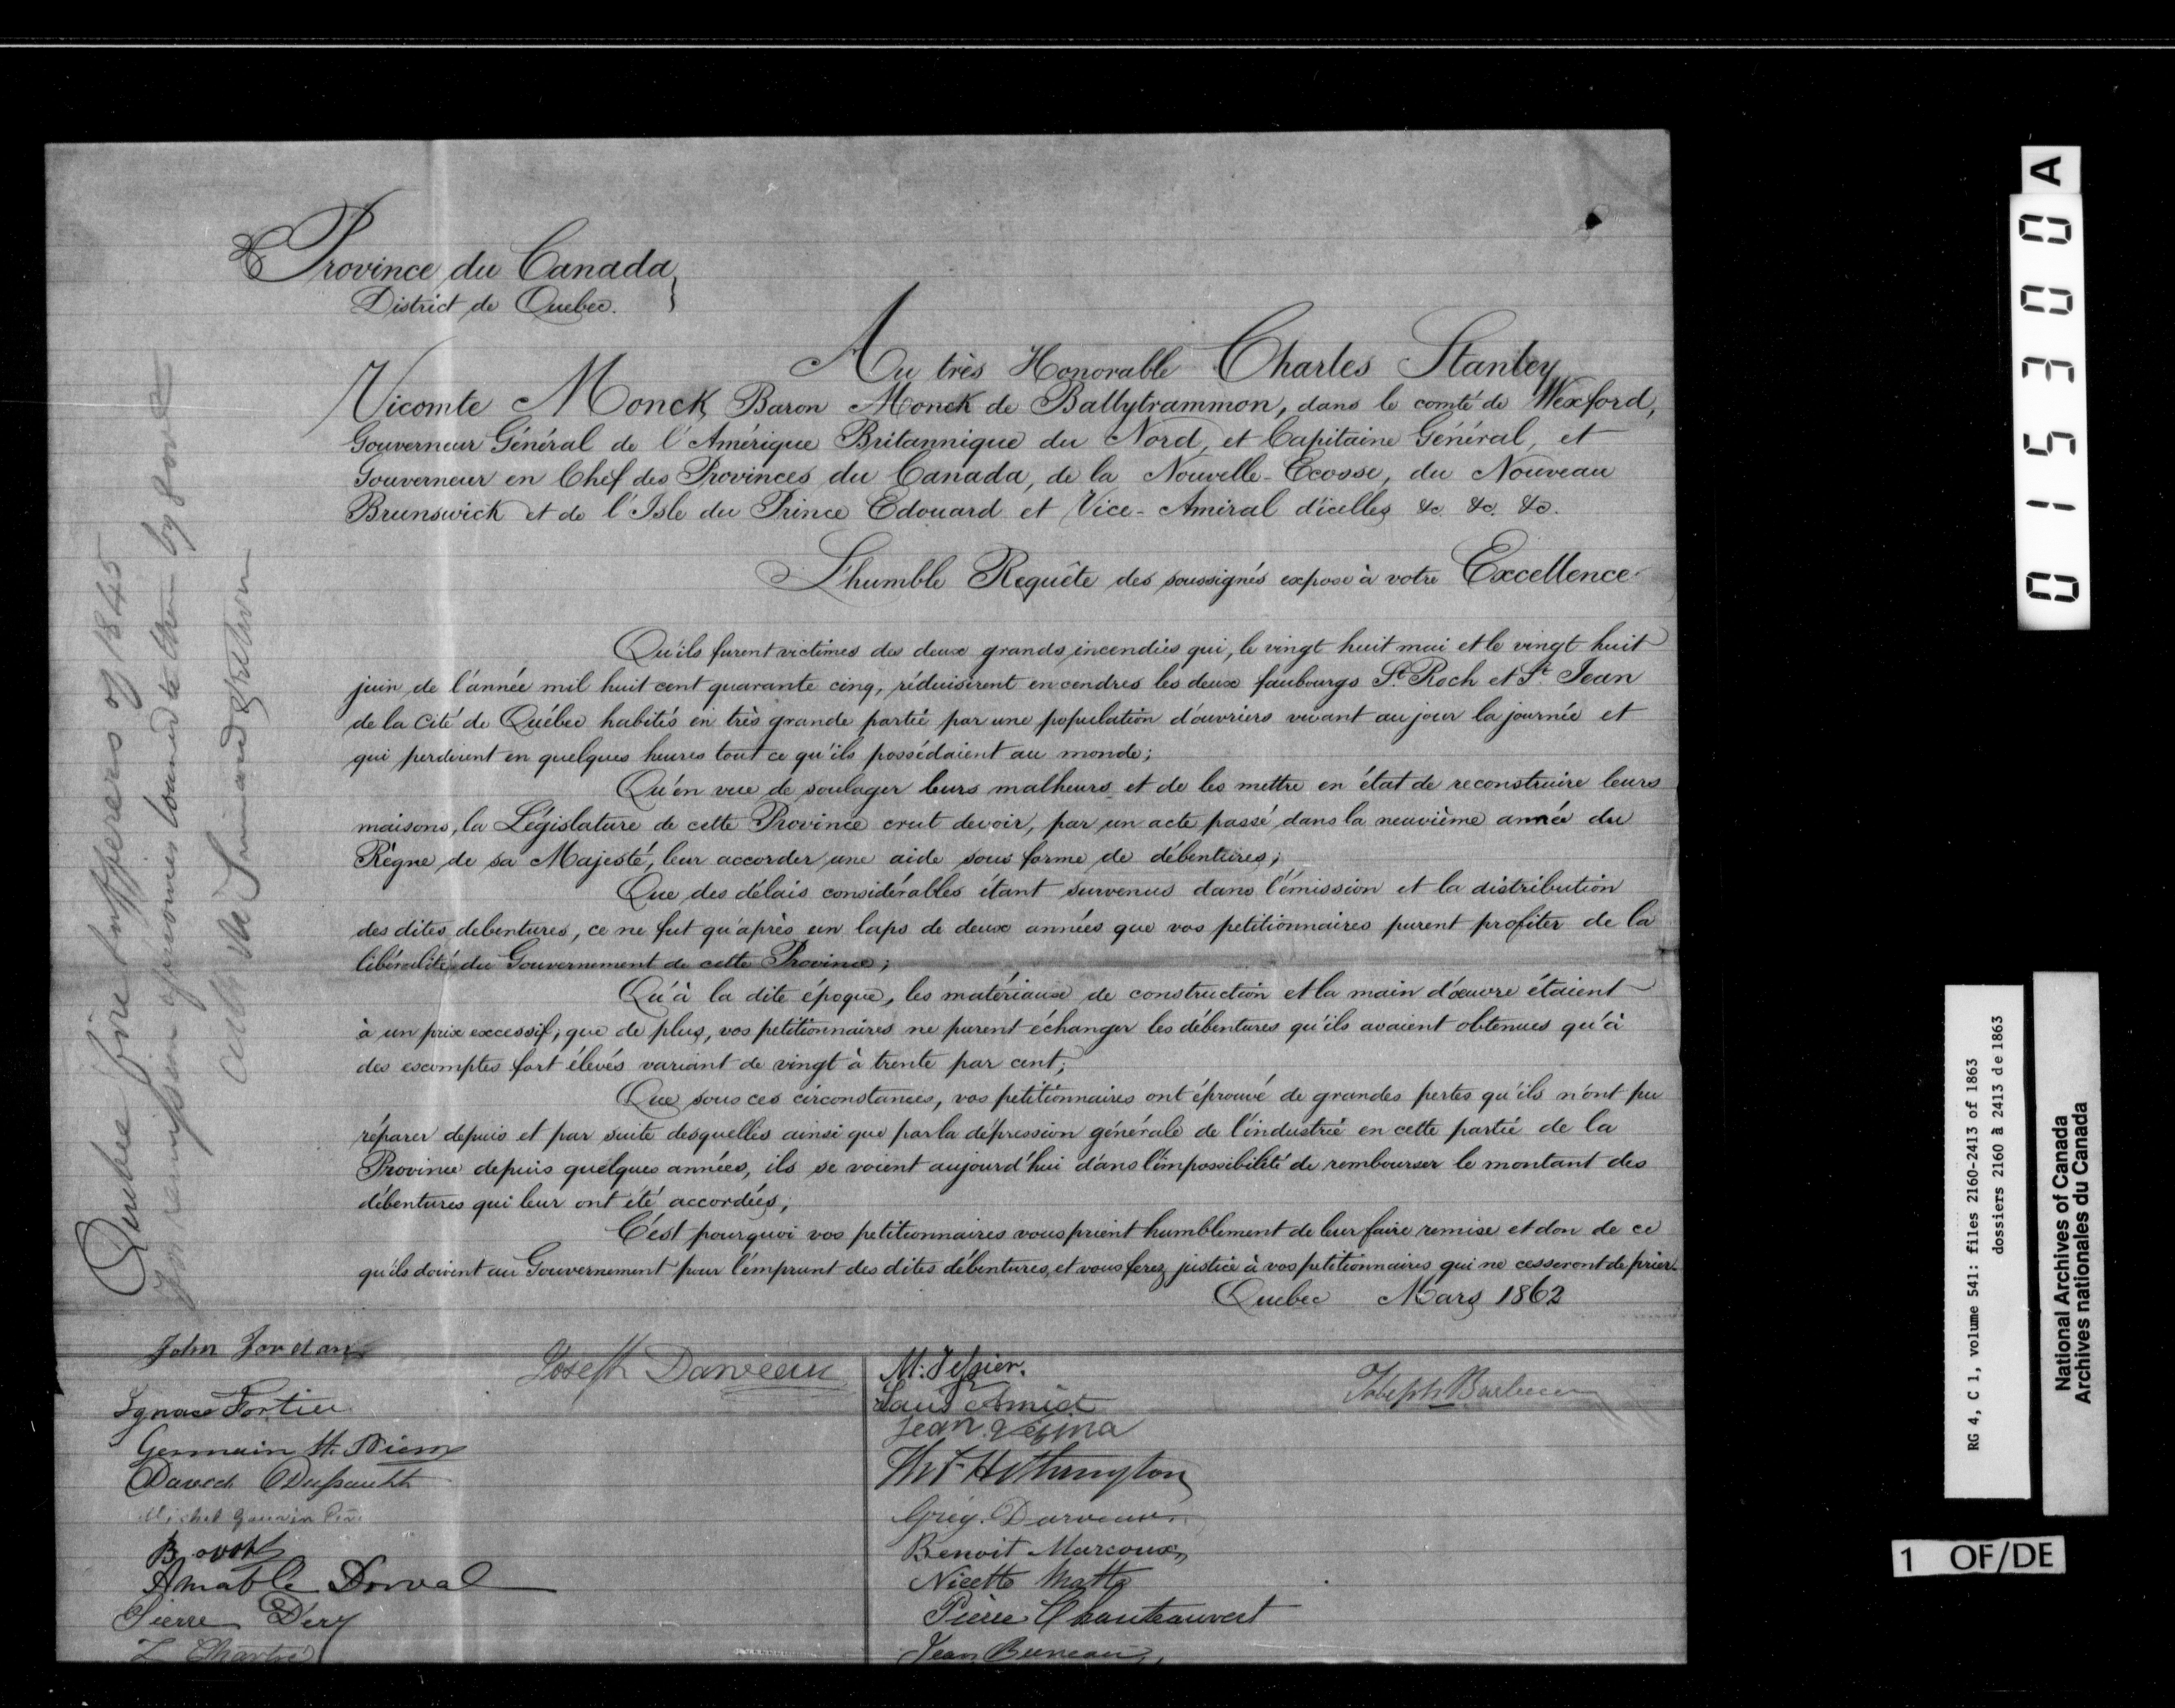 Province du Canada }
District de Quebec.
Au très Honorable Charles Stanley
Vicomte Monck, Baron Monck de Ballytrammon, dans le comté de Wexford,
Gouverneur Général de l'Amérique Britannique du Nord, et Capitaine Général, et
Gouverneur en Chef des Provinces du Canada, de la Nouvelle-Ecosse, du Nouveau
Brunswick et de l'Isle du Prince Edouard et Vice-Amiral d'icelles &c. &c. &c.
L'humble Requête des soussignés expose à votre Excellence
Qu'ils furent victimes des deux grands incendies qui, le vingt huit mai et le vingt huit
juin de l'année mil huit cent quarante cinq, réduisirent en cendres les deux faubourgs St. Roch et St. Jean
de la Cité de Québec habités en très grande partie par une population d'ouvriers vivant au jour la journée et
qui perdirent en quelques heures tout ce qu'ils possédaient au monde;
Qu'en vue de soulager leurs malheurs et de les mettre en état de reconstruire leurs
maisons, la Législature de cette Province crut devoir, par un acte passé dans la neuvième année du
Règne de sa Majesté, leur accorder une aide sous forme de débentures;
Que des délais considérables étant survenus dans l'émission et la distribution
des dites debentures, ce ne fut qu'après un laps de deux années que vos petitionnaires purent profiter de la
libéralité du Gouvernement de cette Province;
Qu'à la dite époque, les matériaux de construction et la main d'œuvre étaient
à un prix excessif; que de plus, vos petitionnaires ne purent échanger les débentures qu'ils avaient obtenues qu'à
des escomptes fort élevés variant de vingt à trente par cent;
Que sous ces circonstances, vos petitionnaires ont éprouvé de grandes pertes qu'ils n'ont pu
réparer depuis et par suite desquelles ainsi que par la dépression générale de l'industrie en cette partie de la
Province depuis quelques années, ils se voient aujourd'hui dans l'impossibilité de rembourser le montant des
débentures qui leur ont été accordées;
C'est pourquoi vos petitionnaires vous prient humblement de leur faire remise et don de ce
qu'ils doivent au Gouvernement pour l'emprunt des dites débentures, et vous ferez justice à vos petitionnaires qui ne cesseront de prier.
Quebec Mars 1862
John Jordan
Joseph Darveau
Ignace Fortier
Germain St. Pierre
David Dussault
Michel Gauvin
Amable Dorval
Pierre Dery
Z Chartré
M. Tessier.
Louis Amiot
Jean Vezina
Hethrington
Grég. Darveau
Benoit Marcoux
Nicette Matte
Pierre Chauteauvert
Jean Buneau
Joseph Barbeau
Quebec fire sufferers of 1845
for remission of monies loaned to them by Govt
015300 A
RG 4, C 1, volume 541: files 2160-2413 of 1863
dossiers 2160 à 2413 de 1863
National Archives of Canada
Archives nationales du Canada
1 OF/DE